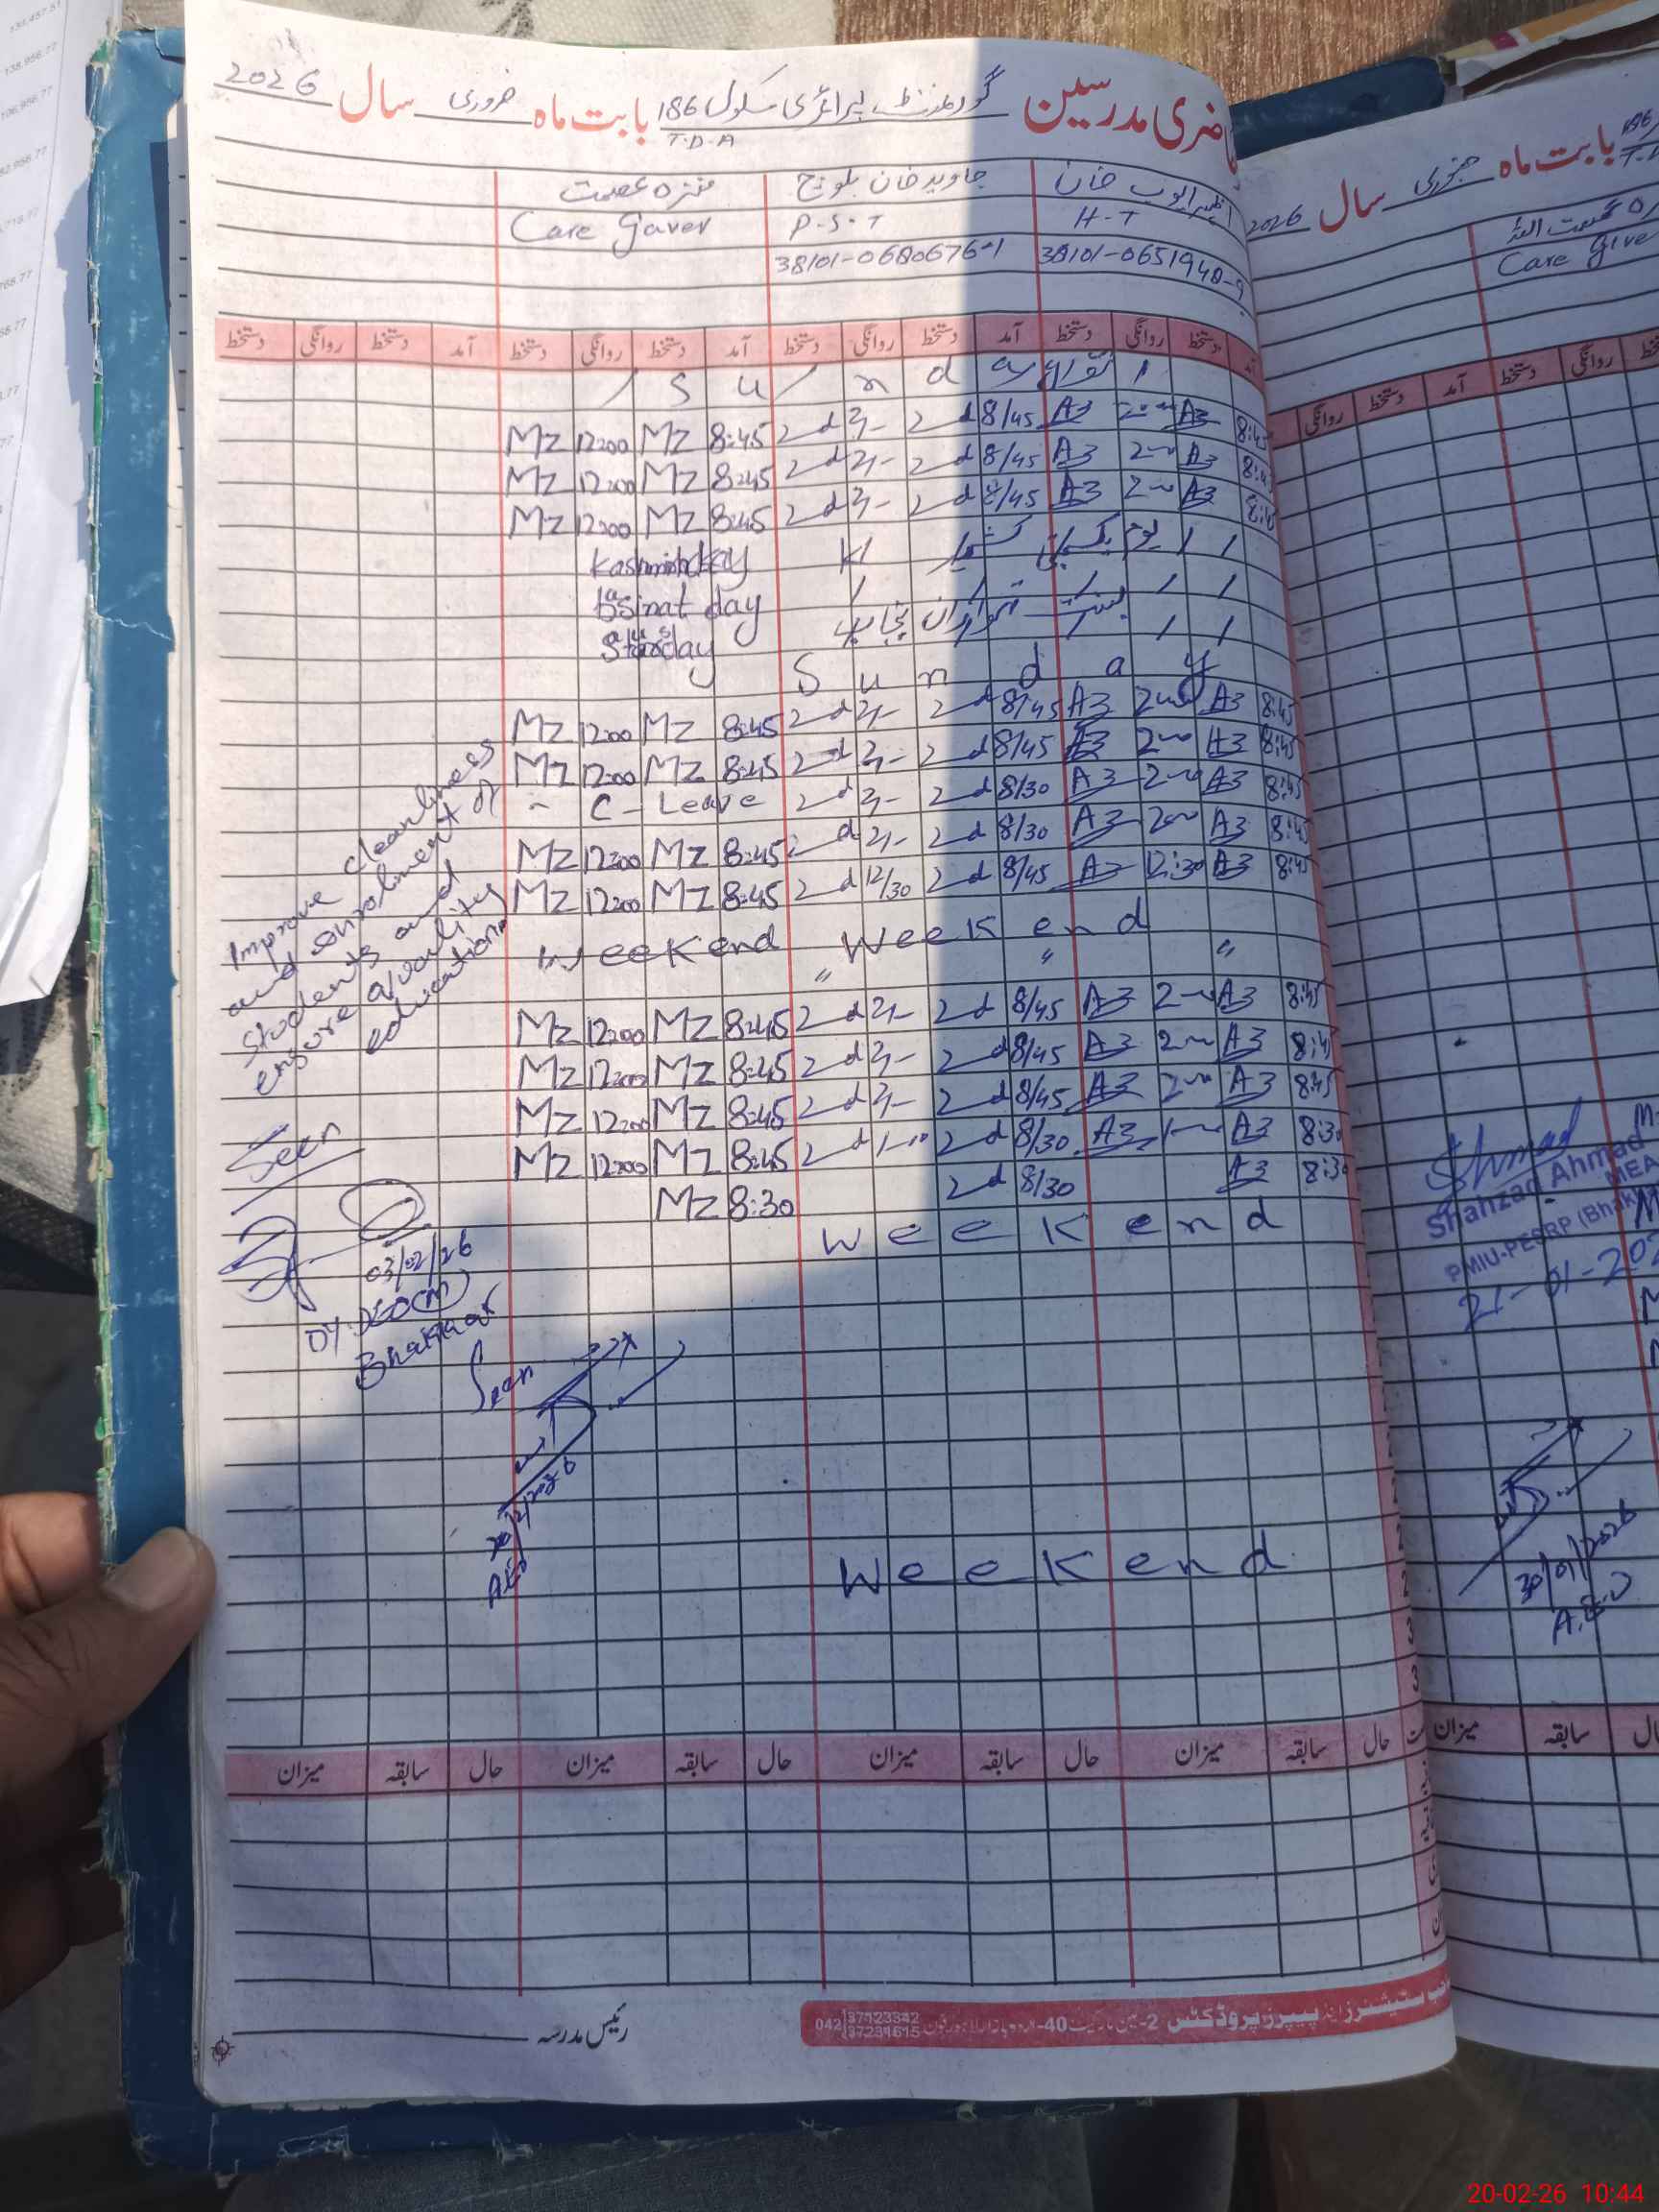 حاضری مدرسین گورنمنٹ پرائمری سکول 186 بابت ماہ فروری سال 2026
T.D.A
اظہر ایوب خان جاوید خان بلوچ منزہ عصمت
H-T P-S-T Care Gaver
38101-0651948-9 38101-0680676-1
آمد دستخط روانگی دستخط آمد دستخط روانگی دستخط آمد دستخط روانگی دستخط آمد دستخط روانگی دستخط
S u n d a y اتوار
8:45 A3 2 A3 8/45 2d 2/- 2d 8:45 Mz 12:00 Mz
8:45 A3 2 A3 8/45 2d 2/- 2d 8:45 Mz 12:00 Mz
8:45 A3 2 A3 8/45 2d 2/- 2d 8:45 Mz 12:00 Mz
یوم یکجہتی کشمیر Kashmir day
Basinat day
بسنت تہوار
S u n d a y
8:45 A3 2 A3 8/45 2d 2/- 2d 8:45 Mz 12:00 Mz
8:45 A3 2 A3 8/45 2d 2/- 2d 8:45 Mz 12:00 Mz
8:45 A3 2 A3 8/30 2d 2/- 2d C - Leave
8:45 A3 2 A3 8/30 2d 2/- 2d 8:45 Mz 12:00 Mz
8:45 A3 12:30 A3 8/45 2d 12/30 2d 8:45 Mz 12:00 Mz
Weekend Week end
" " "
8:45 A3 2 A3 8/45 2d 2/- 2d 8:45 Mz 12:00 Mz
8:45 A3 2 A3 8/45 2d 2/- 2d 8:45 Mz 12:00 Mz
8:45 A3 2 A3 8/45 2d 2/- 2d 8:45 Mz 12:00 Mz
8:30 A3 1 A3 8/30 2d 1 2d 8:45 Mz 12:00 Mz
8:30 A3 8/30 2d 8:30 Mz
Week end
Week end
Improve cleanliness
and enrolment of
Students and
ensure quality
education
Seen
03/02/26
DY.DEO(M)
Bhakkar
Seen
AEO
میزان سابقہ حال میزان سابقہ حال میزان سابقہ حال میزان سابقہ حال
رئیس مدرسہ
ستیشنرز اینڈ پیپرز پروڈکٹس 2-مین مارکیٹ 40-اردو بازار لاہور فون 042 37123342
37231615
بابت ماہ جنوری سال 2026
عصمت اللہ
Care Give
آمد دستخط روانگی دستخط
Shahzad Ahmad
MEA
PMIU-PESRP (Bhak
21-01-202
30/01/2026
A.E.O
میزان سابقہ
20-02-26 10:44